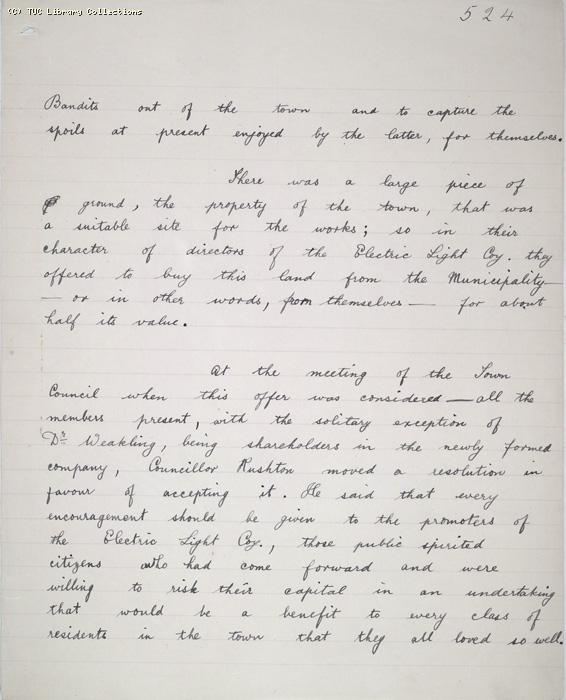 (C) TUC Library Collections
524
Bandits out of the town and to capture the
spoils at present enjoyed by the latter, for themselves.
There was a large piece of
ground, the property of the town, that was
a suitable site for the works; so in their
character of directors of the Electric Light Coy. they
offered to buy this land from the Municipality—
— or in other words, from themselves — for about
half its value.
At the meeting of the Town
Council when this offer was considered — all the
members present, with the solitary exception of
Dr Weakling, being shareholders in the newly formed
company, Councillor Rushton moved a resolution in
favour of accepting it. He said that every
encouragement should be given to the promoters of
the Electric Light Coy., those public spirited
citizens who had come forward and were
willing to risk their capital in an undertaking
that would be a benefit to every class of
residents in the town that they all loved so well.